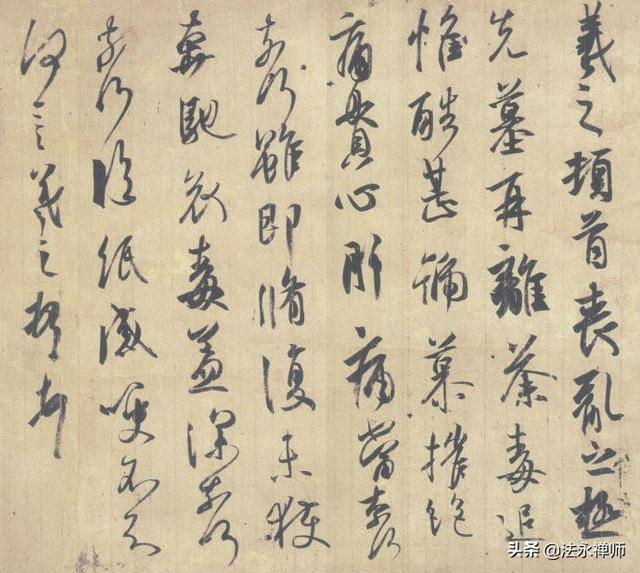 羲之頓首喪亂之極
先墓再離荼毒追
惟酷甚號慕摧絕
痛貫心肝痛當奈何
奈何雖即脩復未獲
奔馳哀毒益深奈何
奈何臨紙感哽不知
何言羲之頓首頓首
头条 @法永禅师